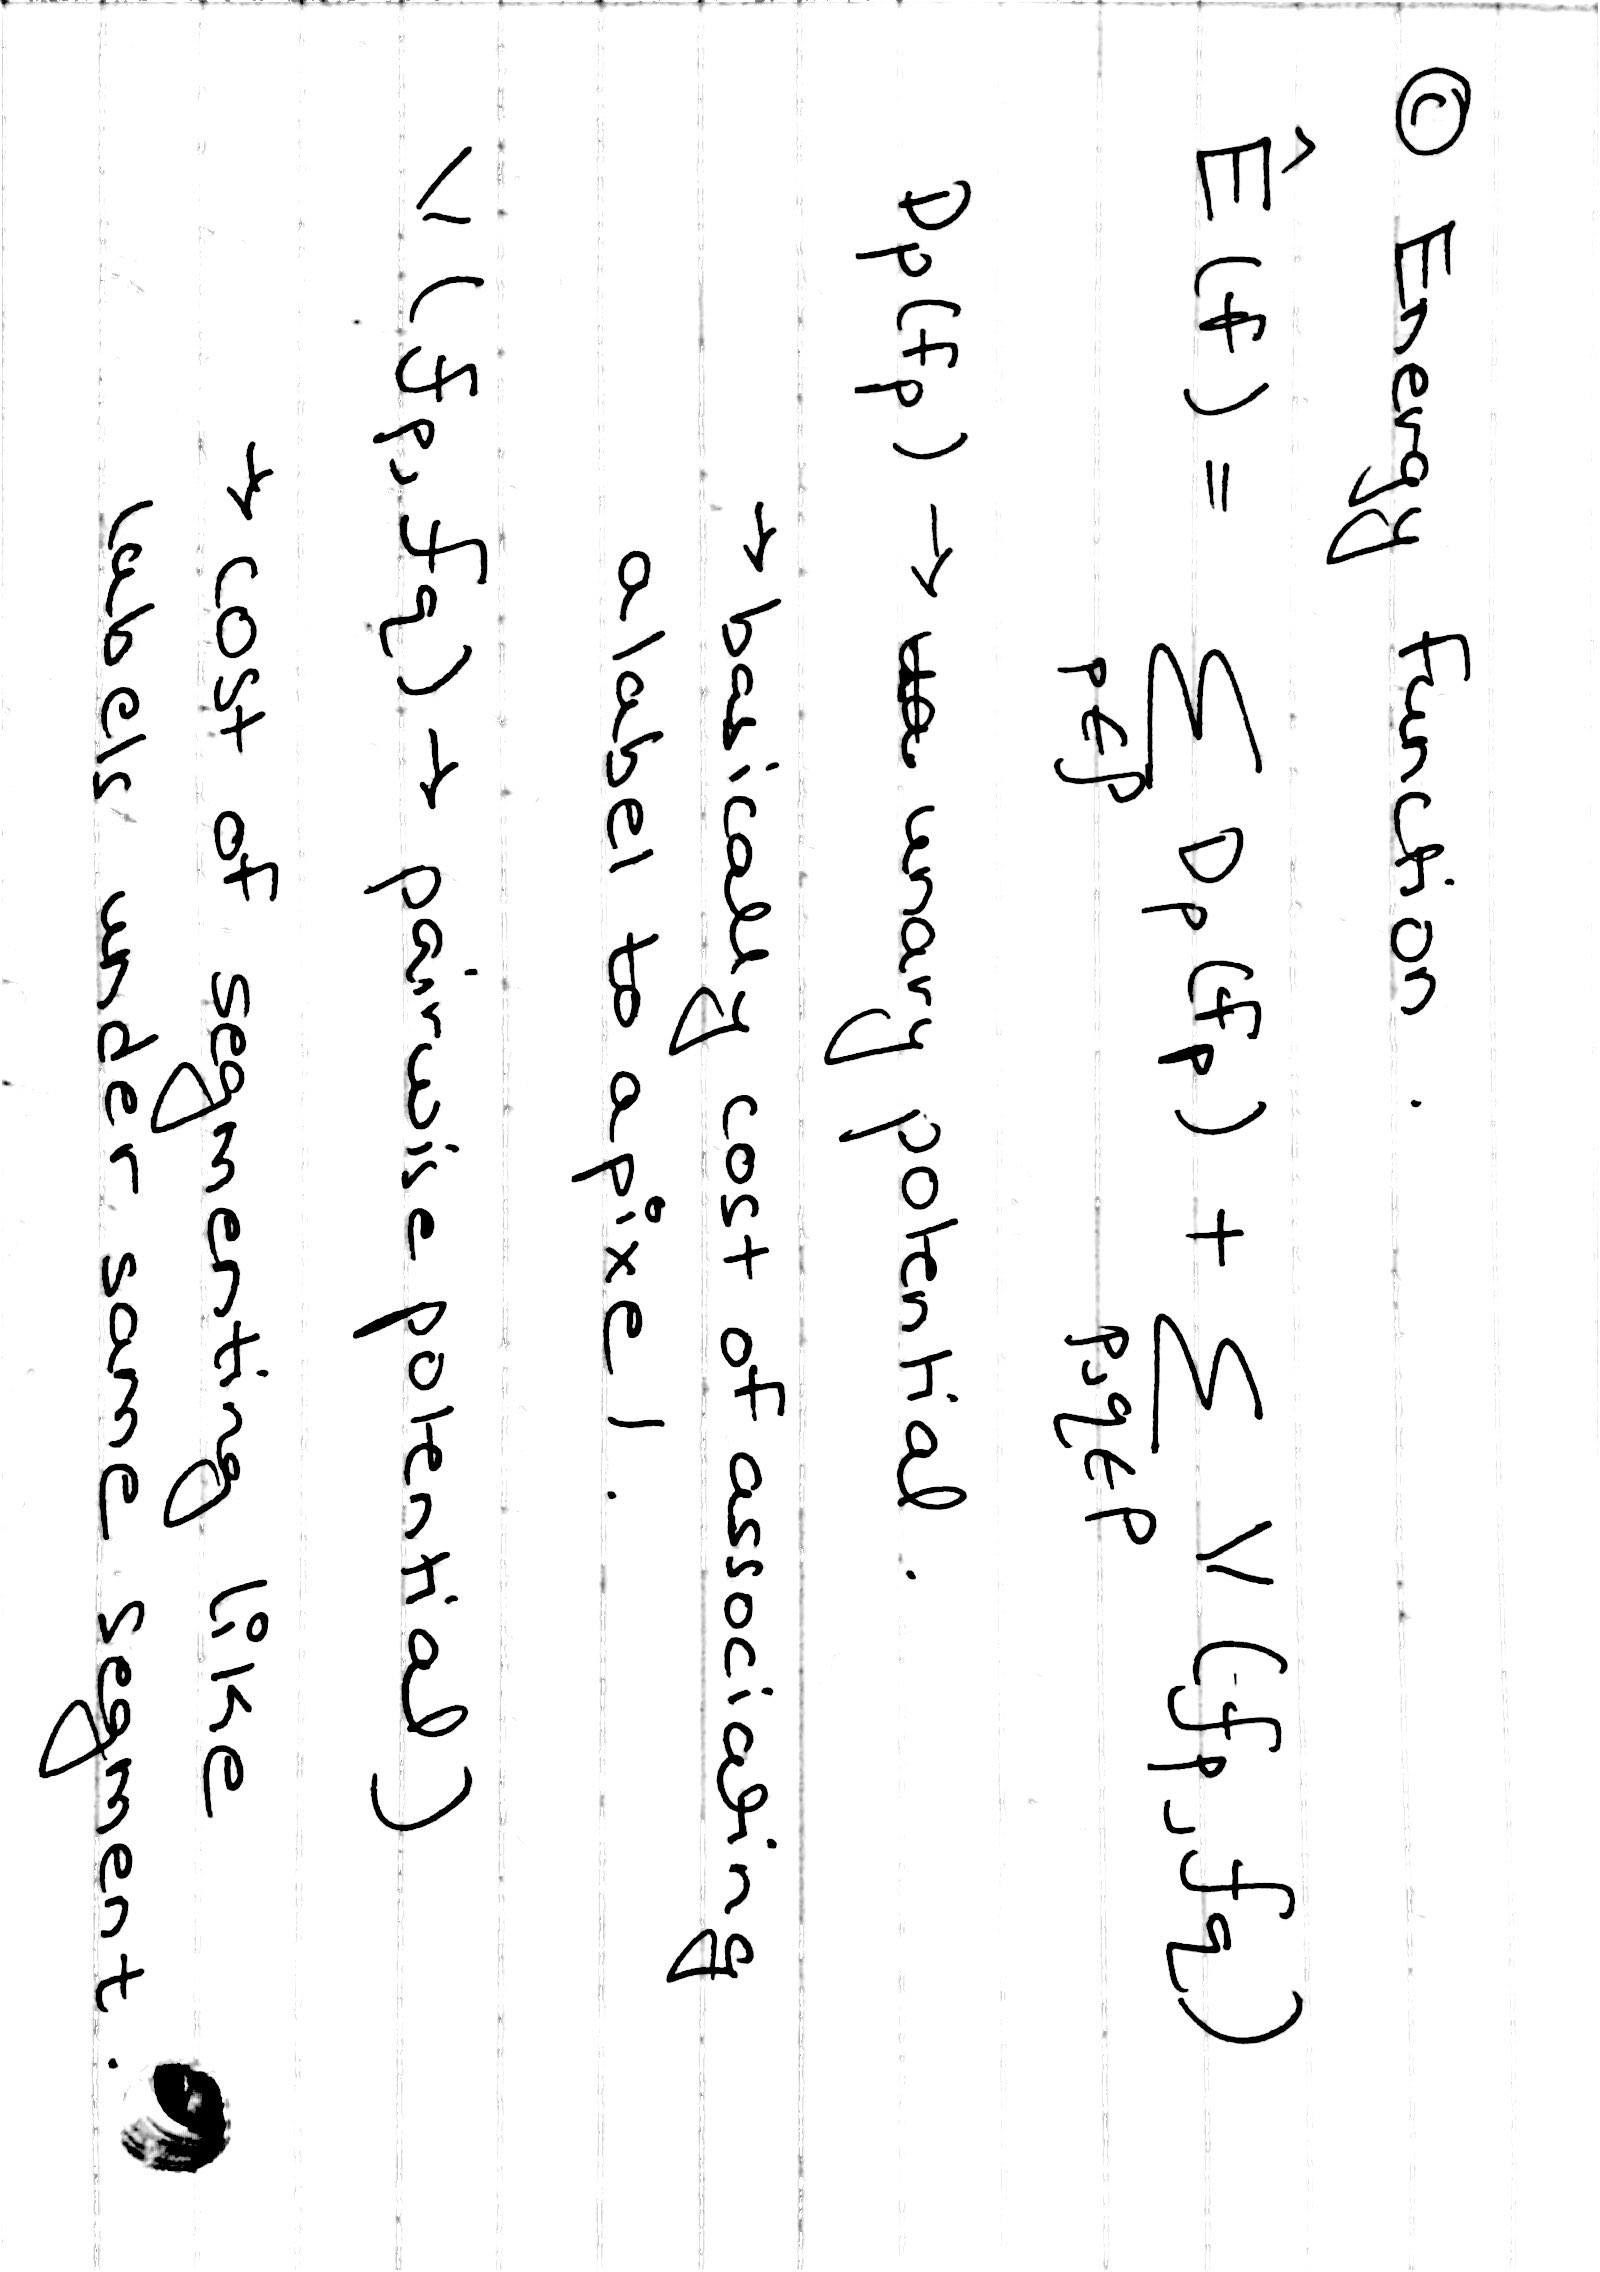 © Energy Function.
Ê(f) = Σ Dp(fp) + Σ V(fp, fq)
p∈P p,q∈P
Dp(fp) → unary potential.
→ basically cost of associating
a label to a pixel.
V(fp, fq) → pairwise potential)
→ cost of segmenting like
labels under same segment.